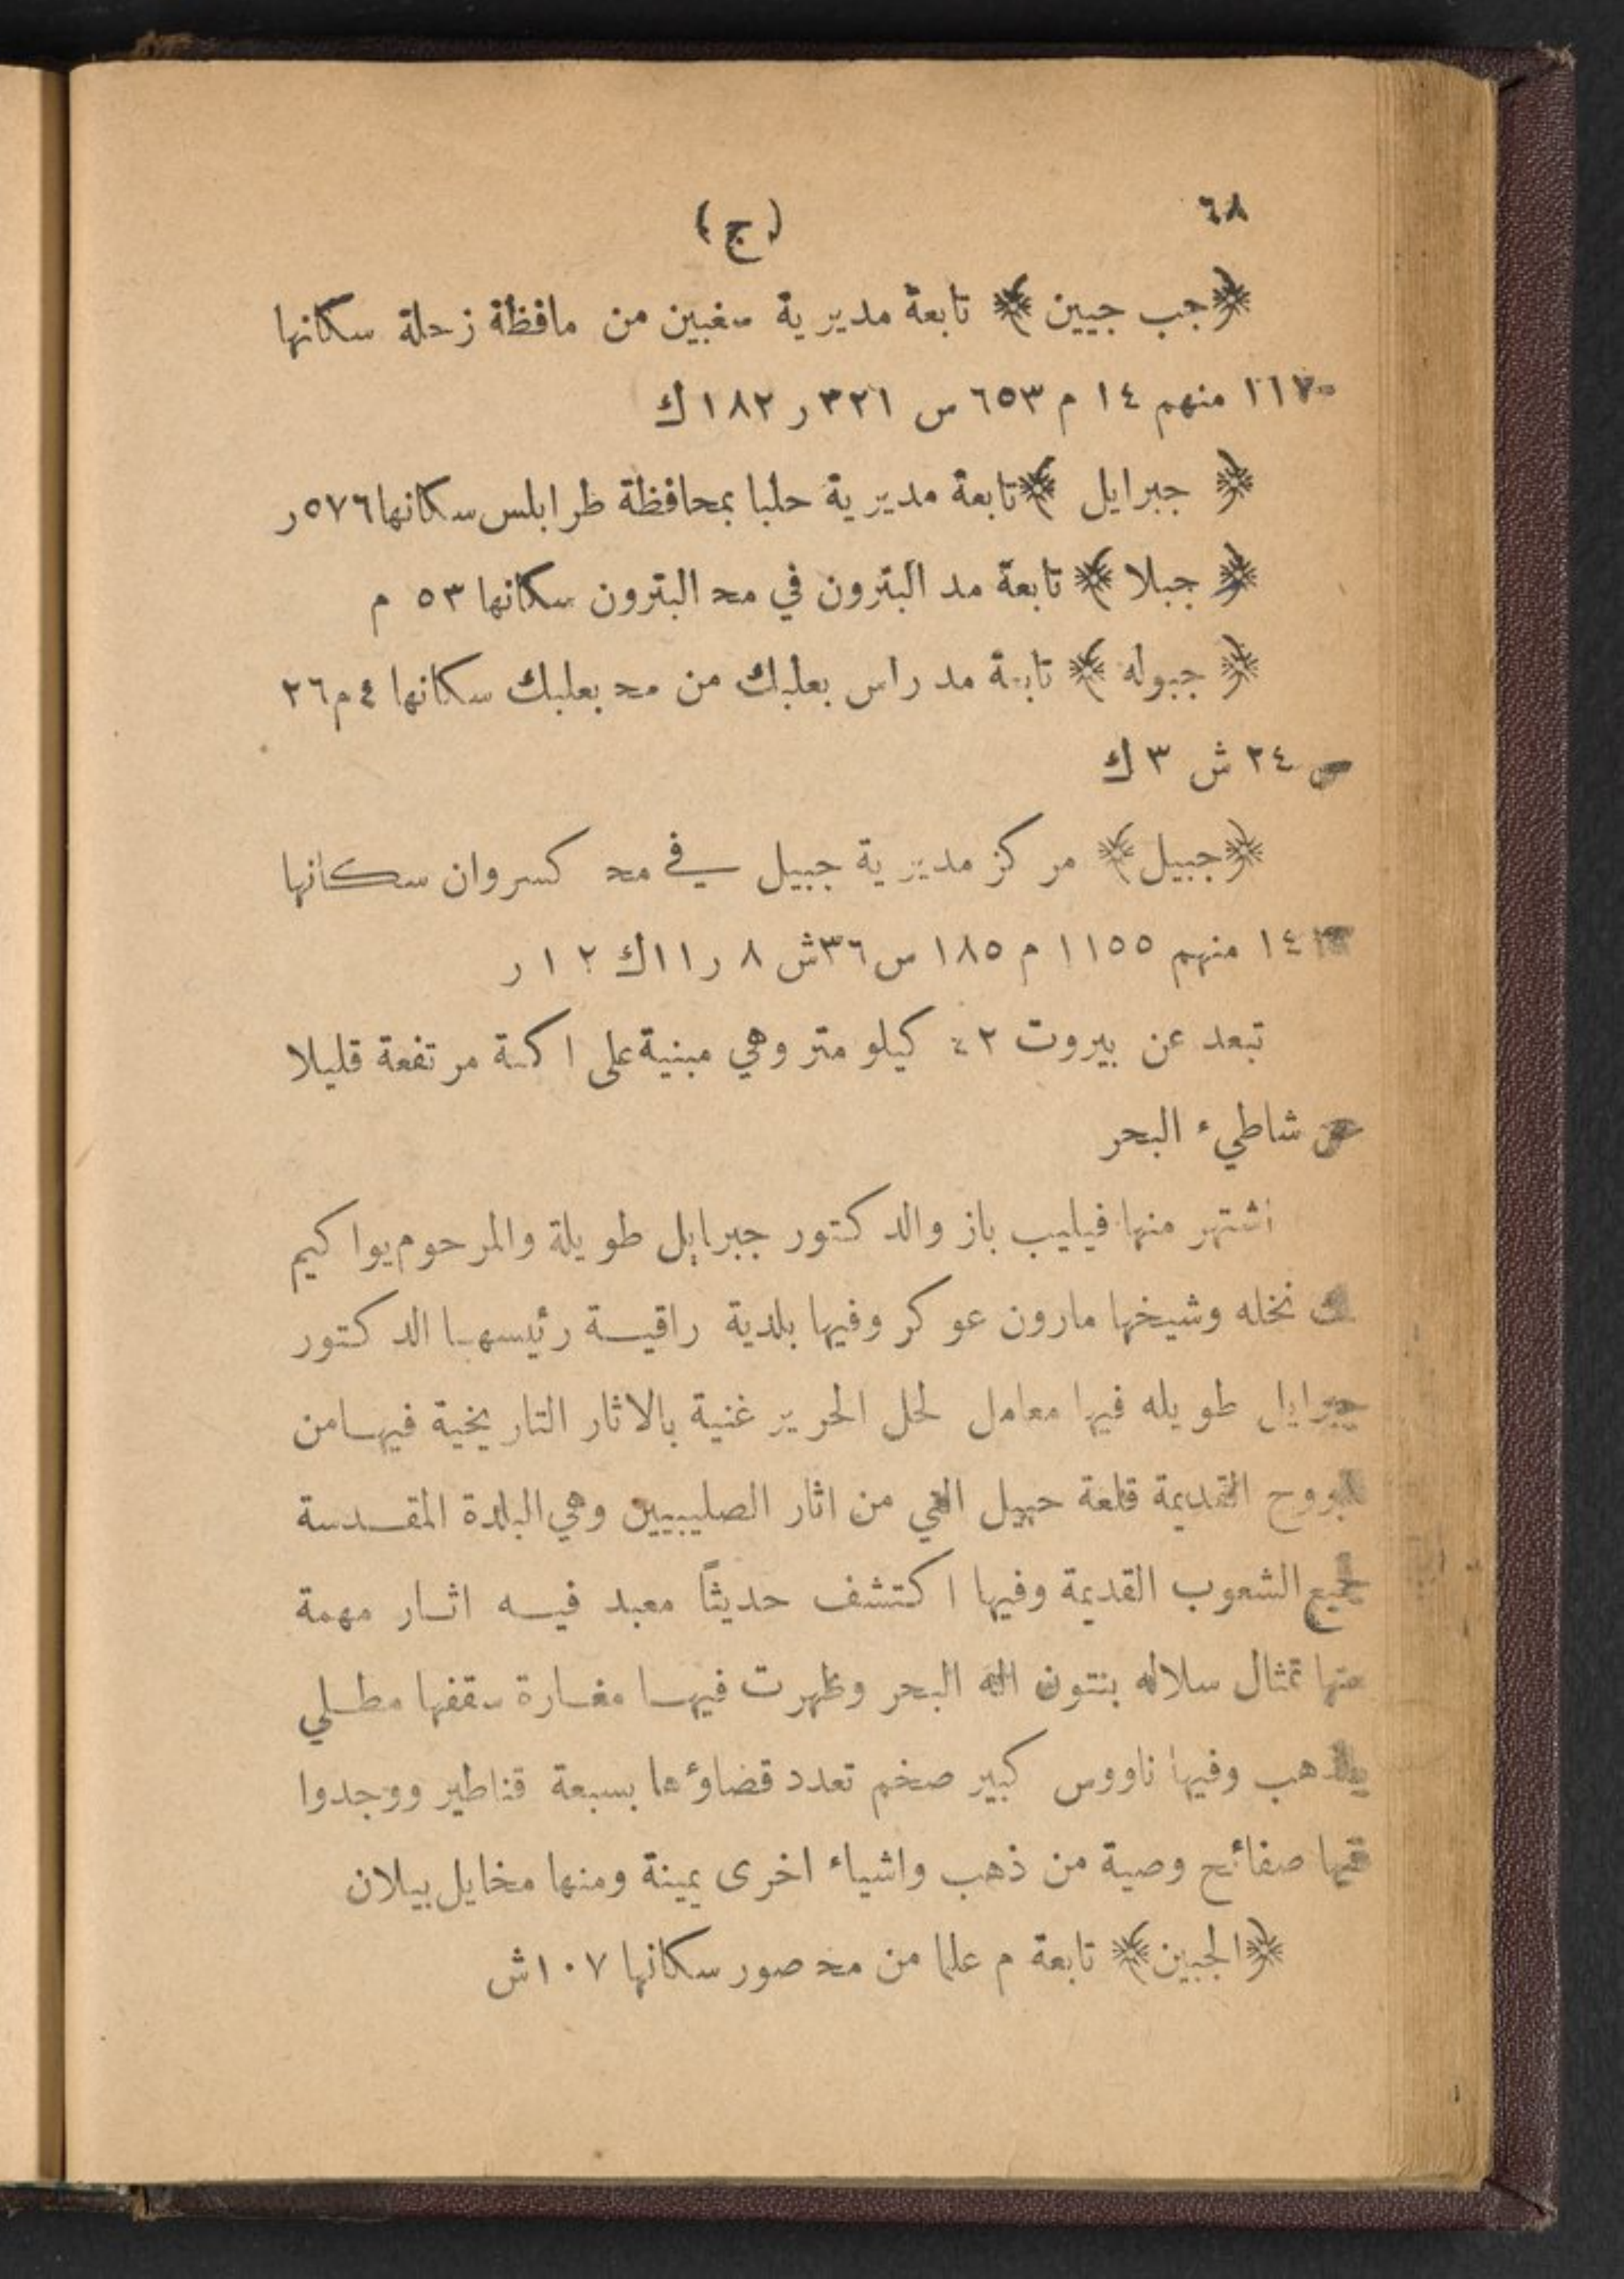 ٦٨
(ج)
﴿جب جيين﴾ تابعة مديرية مغبين من مافظة زحلة سكانها
١١٧٠ منهم ١٤ م ٦٥٣ س ٣٢١ ر ١٨٢ ك
﴿ جبرايل ﴾ تابعة مديرية حلبا بمحافظة طرابلس سكانها ٥٧٦ر
﴿ جبلا ﴾ تابعة مد البترون في مح البترون سكانها ٥٣ م
﴿ جبوله ﴾ تابعة مد راس بعلبك من مح بعلبك سكانها ٤م٢٦
س ٢٤ ش ٣ ك
﴿جبيل﴾ مركز مديرية جبيل في مح كسروان سكانها
منهم ١١٥٥ م ١٨٥ س ٣٦ش ٨ ر ١١ك ١٢ ر
تبعد عن بيروت ٤٢ كيلو متر وهي مبنية على اكمة مرتفعة قليلا
عن شاطيء البحر
اشتهر منها فيليب باز والدكتور جبرايل طويلة والمرحوم يواكيم
بك نخله وشيخها مارون عوكر وفيها بلدية راقية رئيسها الدكتور
جبرايل طويله فيها معامل لحل الحرير غنية بالاثار التاريخية فيها من
البروح القديمة قلعة جبيل التي من اثار الصليبيين وهي البلدة المقدسة
لجميع الشعوب القديمة وفيها اكتشف حديثاً معبد فيه اثار مهمة
منها تمثال سلاله بنتون اله البحر وظهرت فيها مغارة سقفها مطلي
بالذهب وفيها ناووس كبير صخم تعدد قضاؤها بسبعة قناطير ووجدوا
فيها صفائح وصية من ذهب واشياء اخرى يمينة ومنها مخايل بيلان
﴿الجبين﴾ تابعة م علما من مح صور سكانها ١٠٧ش